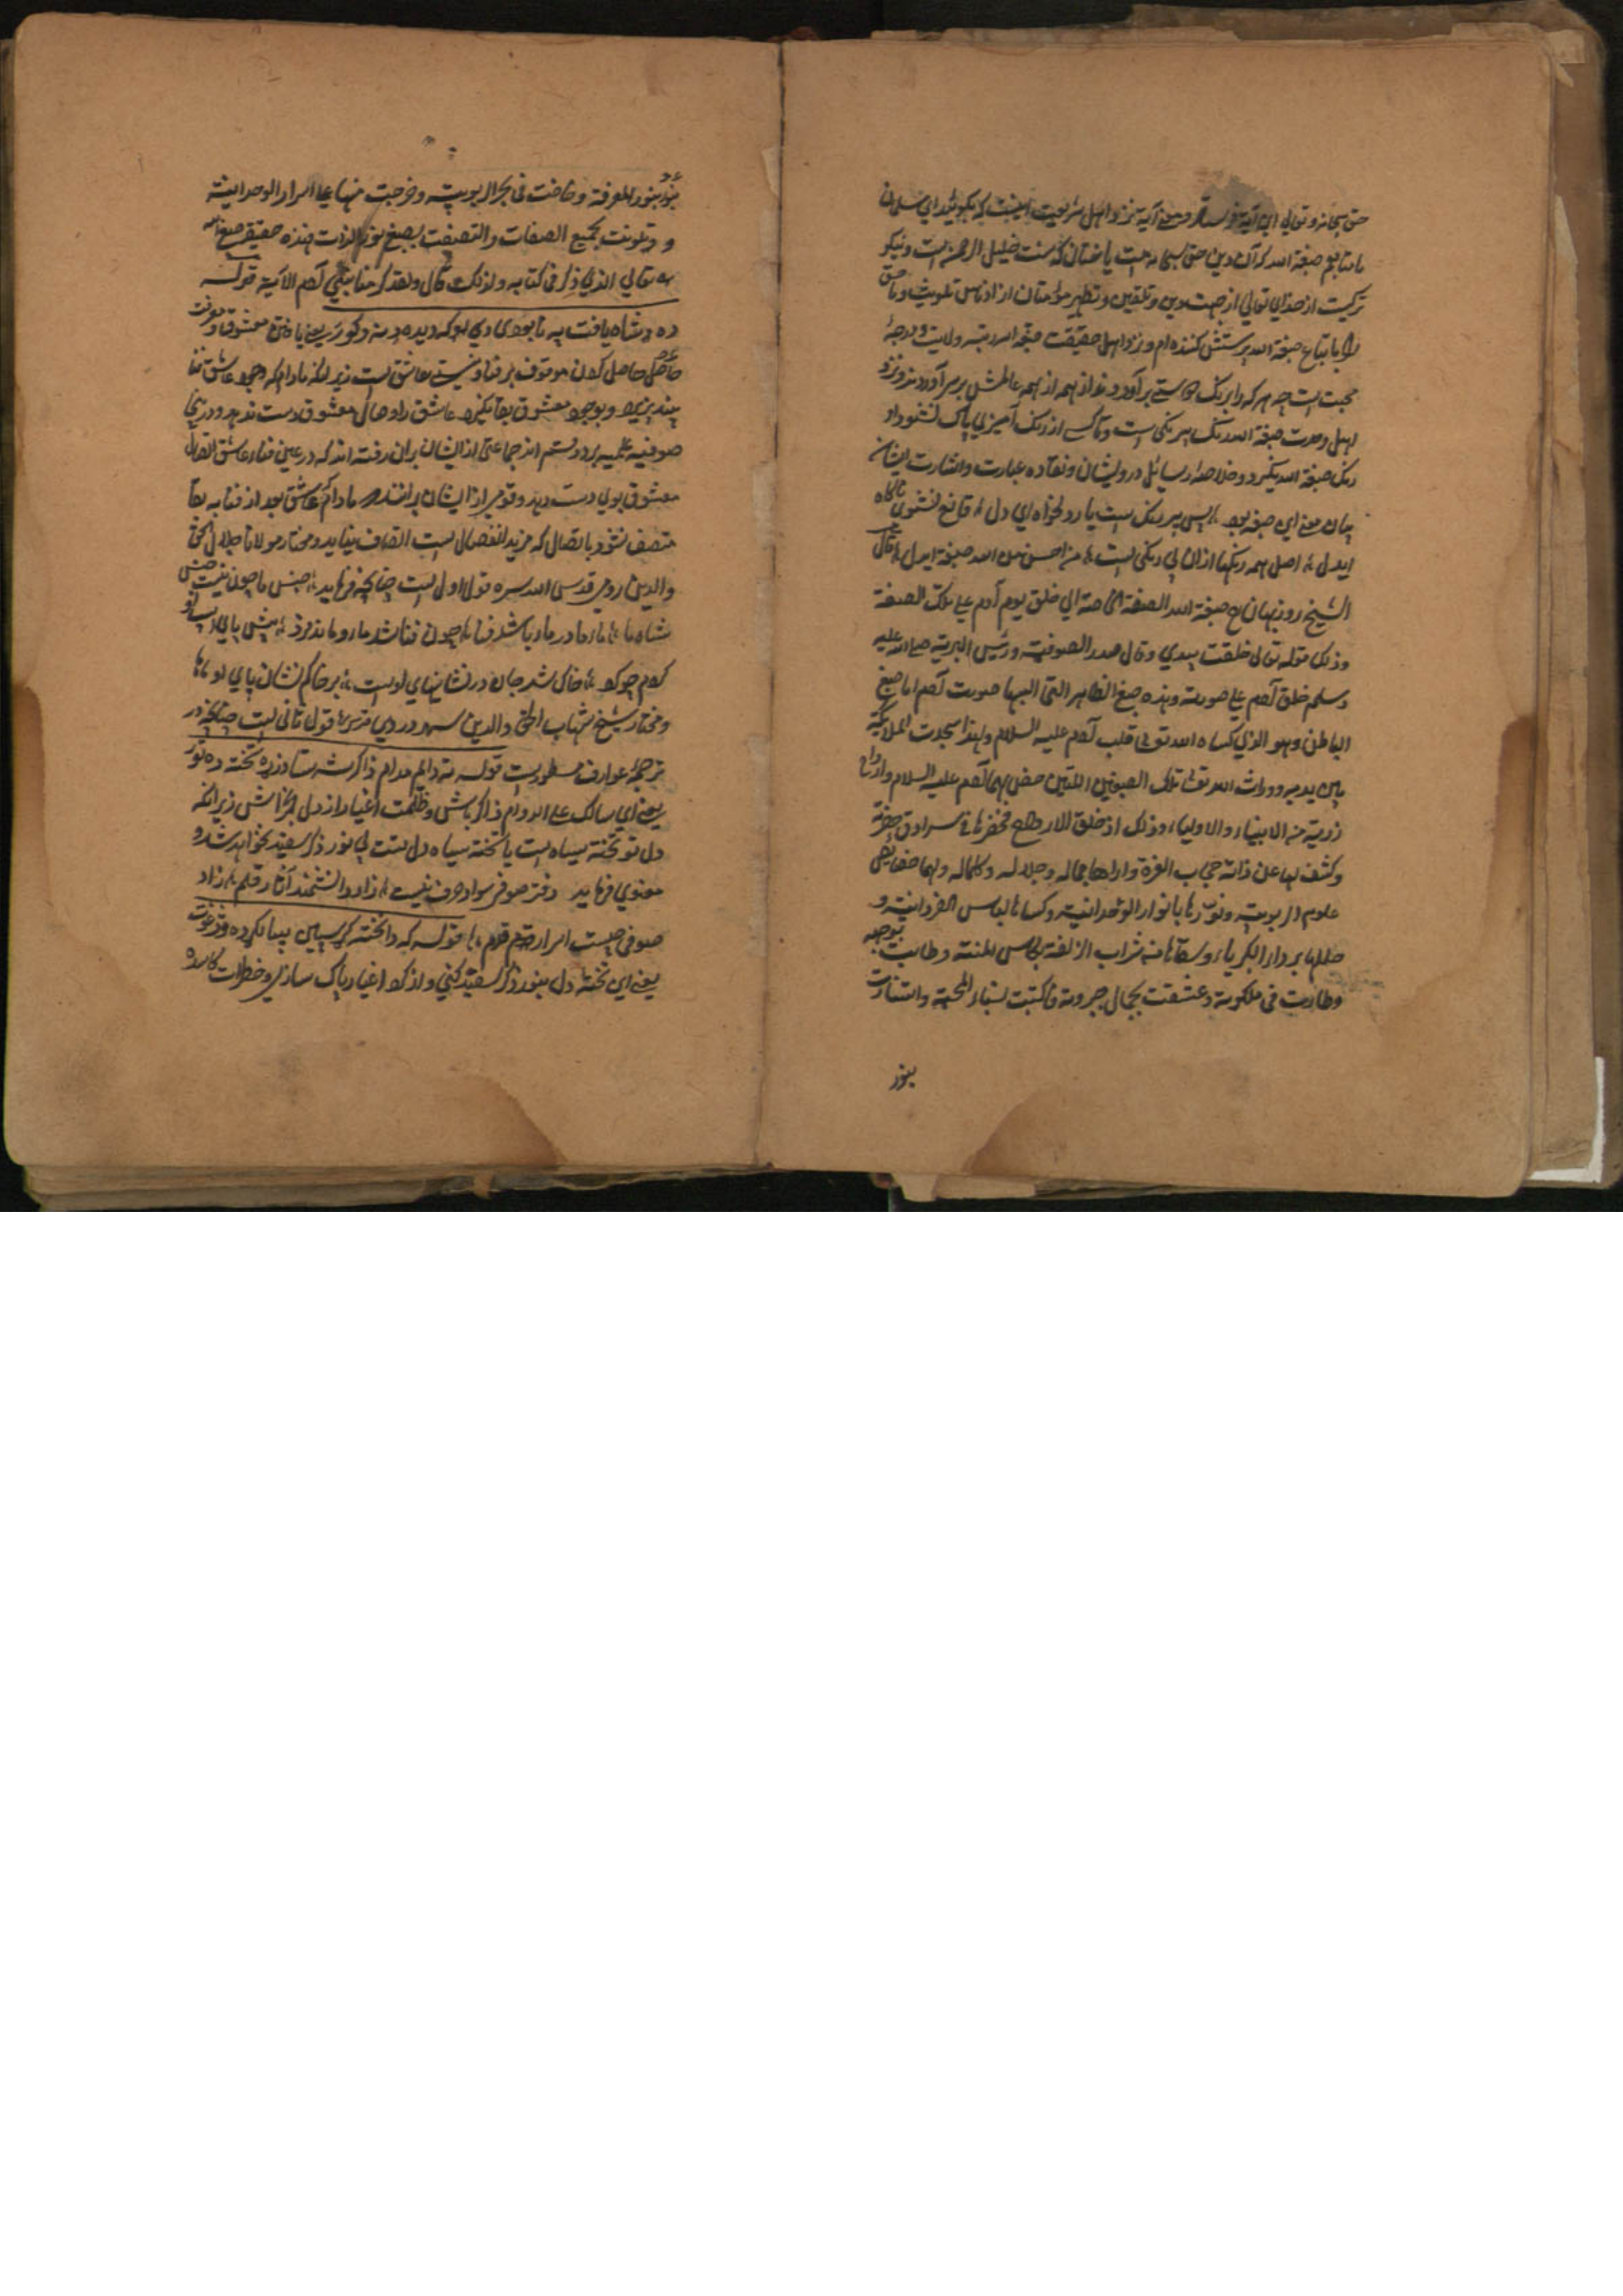 حق سبحانه و تعالی این آیة فرستاد و معنی آیة نزد اهل شریعت اینست که بگوئید ای مسلمانان
ما تابعیم صبغة الله که آن دین حق سبحانه است یا ختان که سنت خلیل الرحمن است و نیکو
تر کیست از خدای تعالی از جهت دین و تلقین و تطهیر مؤمنان از ادناس تلویث و ما حق
را باتباع صبغة الله پرستش کننده ام و نزد اهل حقیقت صبغة الله رتبه ولایت و درجهٔ
محبت است چه هر که را برنگ برآورد از همه از همه عاطلش برسر آورد و نزد
اهل وحدت صبغة الله رنگ بیرنگی است و تا کسی از رنگ آمیزی پاک نشود او
رنگ صبغة الله نگیرد و خلاصهٔ رسائل درویشان و نقاده عبارت و اشارت ایشان
بیان معنی این صبغه بود پس بیرنگ ست یار دلخواه ای دل قانع نشوی برنگ ناگاه
ایدل اصل همه رنگها ازان بی رنگی است من احسن من الله صبغة ایدل قال
الشیخ روزبهان صبغة الله الصفة الخاصة التی خلق یوم آدم علی تلک الصفة
وذلک قوله تعالی خلقت بیدی وقال صدر الصوفیة ورئیس البریة صلی الله علیه
وسلم خلق آدم علی صورته وهذه صبغ الظاهر التی البسها صورت آدم اما صبغ
الباطن وهو الذی کساه الله تعالی قلب آدم علیه السلام ولهذا سجدت الملائکة
بین یدیه وورث الله تعالی تلک الصبغین اللتین خص بهما آدم علیه السلام وارواح
ذریته من الانبیاء والاولیاء وذلک اذ خلق الارواح فحضرها فی سرادق حضرته
وکشف لها عن ذاته حجاب العزة واراها جماله وجلاله وکماله والهمها خصایص
علوم الربوبیة ونورها بانوار الوحدانیة وکساها لباس الفردانیة و
جللها بردار الکبریاء وسقاها من شراب الزلفة بکاس المنة وطابت بوجهه
وطارت فی ملکوته وعشقت بجمال جبروته فاکتبت المحبة واستنارت
بنور
بنور المعرفة وخاضت فی بحر الربوبیة وخرجت منها علی اسرار الوحدانیة
و وتلونت بجمیع الصفات والتصبغت بصبغ نور الذات فهذه حقیقة صبغ الله
تعالی الذی ذکر فی کتابه ولذلک قال ولقد کرمنا بنی آدم الآیة قوله
ده دشاه یافت په نابودی دی یعنی یافتن معشوق و معرفت
حاصل کردن موقوف بر فنا و نیستی عاشق است زیرانکه مادام که وجود عاشق فنا
نپذیرد و بوجود معشوق بقا نگیرد عاشق را وصال معشوق دست ندهد و درینجا
صوفیه علیه بر دو قسم اند جماعتی از ایشان بران رفته اند که در عین فناء عاشق اتصال
معشوق بوی دست دهد و قومی از ایشان برانند مادام که عاشق بعد از فنا به بقا
متصف نشود باتصال که مزید انفصال است اتصاف نیابد و مختار مولانا جلال الحق
والدین رومی قدس الله سره قول اول است چنانچه فرماید جنس ما چون نیست جنس
شاه ما ماء ما در ماء باشد فنا چون فنا شد ماء و ما بذ فرد پیش پای اسپ او
کردم چو گرد خاک شد جان در نشانیهای اوست بر خاکم نشان پای او
و مختار شیخ شهاب الحق والدین سهروردی قول ثانی است چنانچه در
ترجمهٔ عوارف مسطور است قوله ته دایم مدام ذاکر شه ستا د زړه تخته ده تور
یعنی ای سالک علی الدوام ذاکر باش و ظلمت اغیار از دل بخراش زیرانکه
دل تو تختهٔ سیاه است یا تختهٔ سیاه دل تست بی نور ذکر سفید نخواهد شد و
مولوی فرماید دفتر صوفی سواد حرف نیست زاد دانشمند آثار قلم زاد
صوفی چیست اسرار قدم قوله که دا تخته
یعنی این تختهٔ دل بنور ذکر سفید کنی و از گرد اغیار پاک سازی و خطرات فاسده